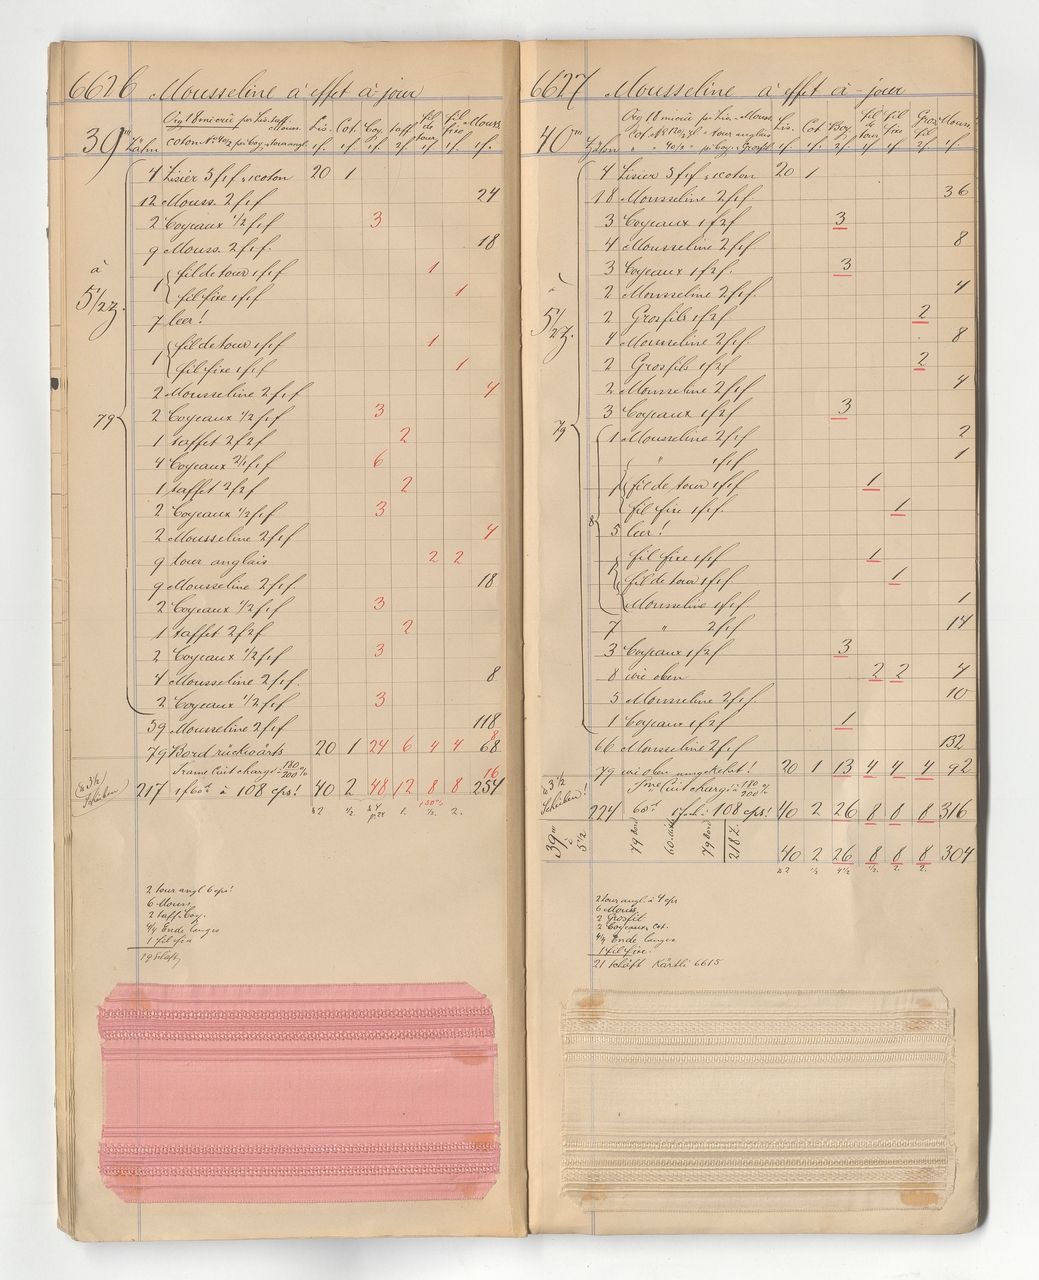 6626 Mousseline à effet à jour
39''' Zähn
Lis. Cot. Coy. taff fil de tour fil fixe Mouss.
1f. 1f. 1f. 2f 1f. 1f. 1f.
4 Lisier 5 f 1 f, 1 coton 20 1
12 Mouss. 2 f 1 f 24
2 Coyeaux 1/2 f 1 f 3
9 Mouss. 2 f 1 f. 18
à
1 fil de tour 1 f 1 f 1
5 1/2 Z. fil fixe 1 f 1 f 1
7 leer!
1 fil de tour 1 f 1 f 1
fil fixe 1 f 1 f 1
2 Mousseline 2 f 1 f 4
79 2 Coyeaux 1/2 f 1 f 3
1 taffet 2 f 2 f 2
4 Coyeaux 2/1 f 1 f 6
1 taffet 2 f 2 f 2
2 Coyeaux 1/2 f 1 f 3
2 Mousseline 2 f 1 f 4
9 tour anglais 2 2
9 Mousseline 2 f 1 f 18
2 Coyeaux 1/2 f 1 f 3
1 taffet 2 f 2 f 2
2 Coyeaux 1/2 f 1 f 3
4 Mousseline 2 f 1 f. 8
2 Coyeaux 1/2 f 1 f 3
59 Mousseline 2 f 1 f 118
8
79 Bord rückwärts 20 1 24 6 4 4 68
Trame Cuit chargé à 180/200 %
à 3 1/2 Scheiben 16
217 1 f 60d à 108 cps! 40 2 48 12 8 8 254
2 tour angl 6 cps!
6 Mouss.
2 taff. Coy.
4/4 Ende langes
1 fil fix
19 Schäft
6627 Mousseline à effet à-jour
40''' Zähn
Lis. Cot Coy. fil de tour fil fixe Gros fil Mouss.
1f. 1f. 2f 1f. 1f. 2f 1f.
4 Lisier 5 f 1 f, 1 coton 20 1
18 Mousseline 2 f 1 f 36
3 Coyeaux 1 f 2 f 3
4 Mousseline 2 f 1 f 8
3 Coyeaux 1 f 2 f. 3
à
2 Mousseline 2 f 1 f. 4
5 1/2 Z. 2 Grosfils 1 f 2 f 2
4 Mousseline 2 f 1 f. 8
2 Grosfils 1 f 2 f 2
2 Mousseline 2 f 1 f 4
3 Coyeaux 1 f 2 f 3
79 1 Mousseline 2 f 1 f 2
" 1 f 1 f 1
1 fil de tour 1 f 1 f 1
fil fixe 1 f 1 f. 1
8 5 leer!
1 fil fixe 1 f 1 f 1
fil de tour 1 f 1 f 1
Mousseline 1 f 1 f. 1
7 " 2 f 1 f 14
3 Coyeaux 1 f 2 f 3
8 wie oben 2 2 4
5 Mousseline 2 f 1 f 10
1 Coyeaux 1 f 2 f 1
66 Mousseline 2 f 1 f 132
79 wie oben umgekehrt! 20 1 13 4 4 4 92
Cuit chargé à 180/200 %
à 3 1/2 Scheiben!
224 60d 1 fach à 108 cps! 40 2 26 8 8 8 316
39''' à 5 1/2 79 Bord 60 79 Bord 218 Z. 40 2 26 8 8 8 304
2 tour angl. à 4 cps
6 Mouss.
2 Grosfil
2 Coyeaux, Cot.
4/4 Ende langes
1 fil fixe.
21 Schäft Kärtli 6615